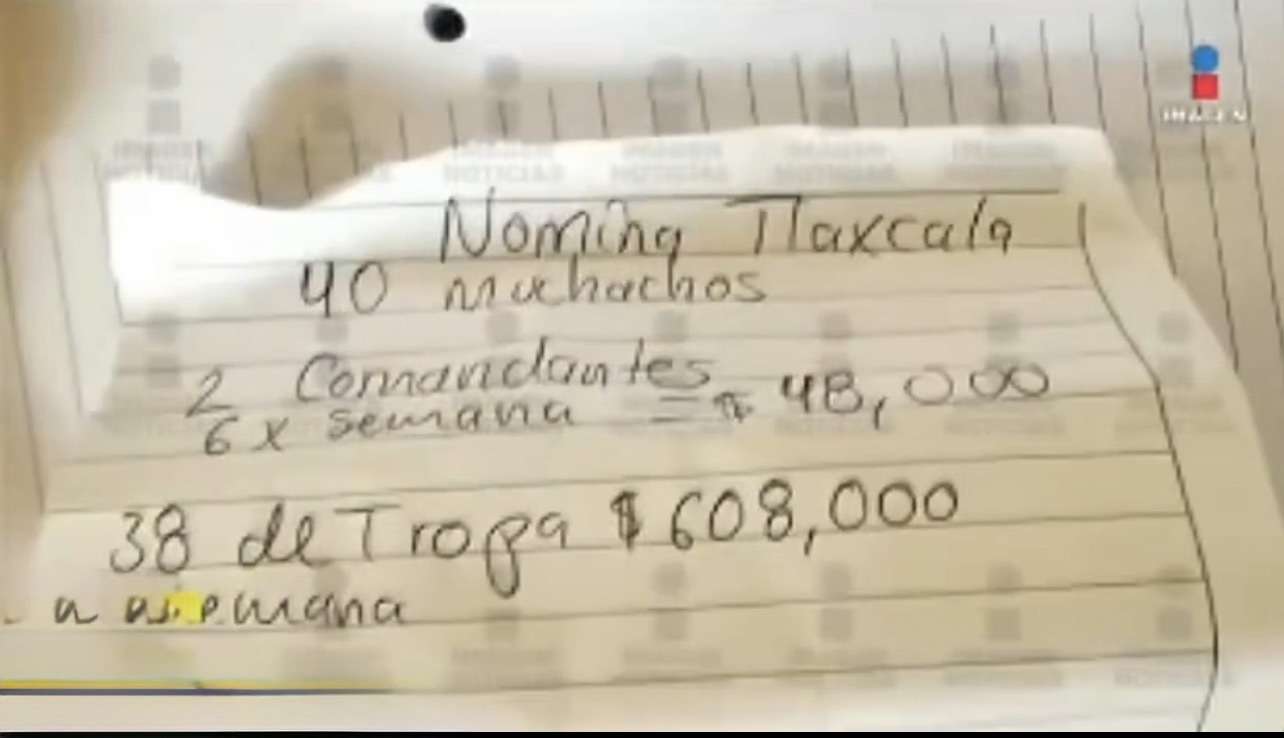 IMAGEN
Nomina Tlaxcala
40 muchachos
2 Comandantes
6 x semana = $ 48,000
38 de Tropa $ 608,000
semana
IMAGEN
NOTICIAS